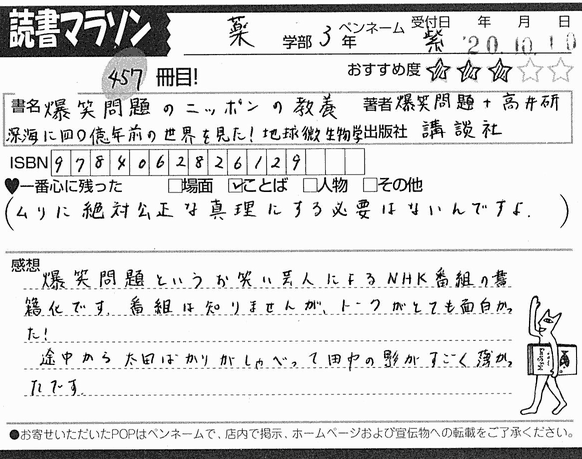 読書マラソン
薬 学部 3 年 ペンネーム 紫 受付日 年 月 日
'20.10.10
457 冊目! おすすめ度 ★★★☆☆
書名 爆笑問題のニッポンの教養 著者 爆笑問題+高井研
深海に四〇億年前の世界を見た! 地球微生物学 出版社 講談社
ISBN 9784062826129
♥一番心に残った □場面 ☑ことば □人物 □その他
(ムリに絶対公正な真理にする必要はないんですよ。)
感想
爆笑問題というお笑い芸人によるNHK番組の書
籍化です。番組は知りませんが、トークがとても面白かっ
た!
途中から太田ばかりがしゃべって田中の影がすごく薄かっ
たです。
My Story
●お寄せいただいたPOPはペンネームで、店内で掲示、ホームページおよび宣伝物への転載をご了承ください。